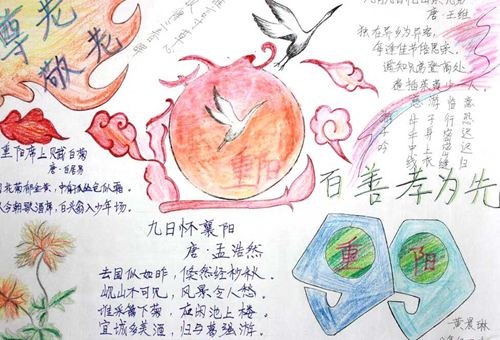 尊老
敬老
唐·王维
独在异乡为异客，
每逢佳节倍思亲。
遥知兄弟登高处，
遍插茱萸少一人。
游子吟
慈母手中线
游子身上衣
临行密密缝
意恐迟迟归
重阳席上赋白菊
唐·白居易
满园花菊郁金黄，中有孤丛色似霜。
还似今朝歌酒席，白头翁入少年场。
重阳
百善孝为先
九日怀襄阳
唐·孟浩然
去国似如昨，倏然经杪秋。
岘山不可见，风景令人愁。
谁采篱下菊，应闲池上楼。
宜城多美酒，归与葛强游。
重
阳